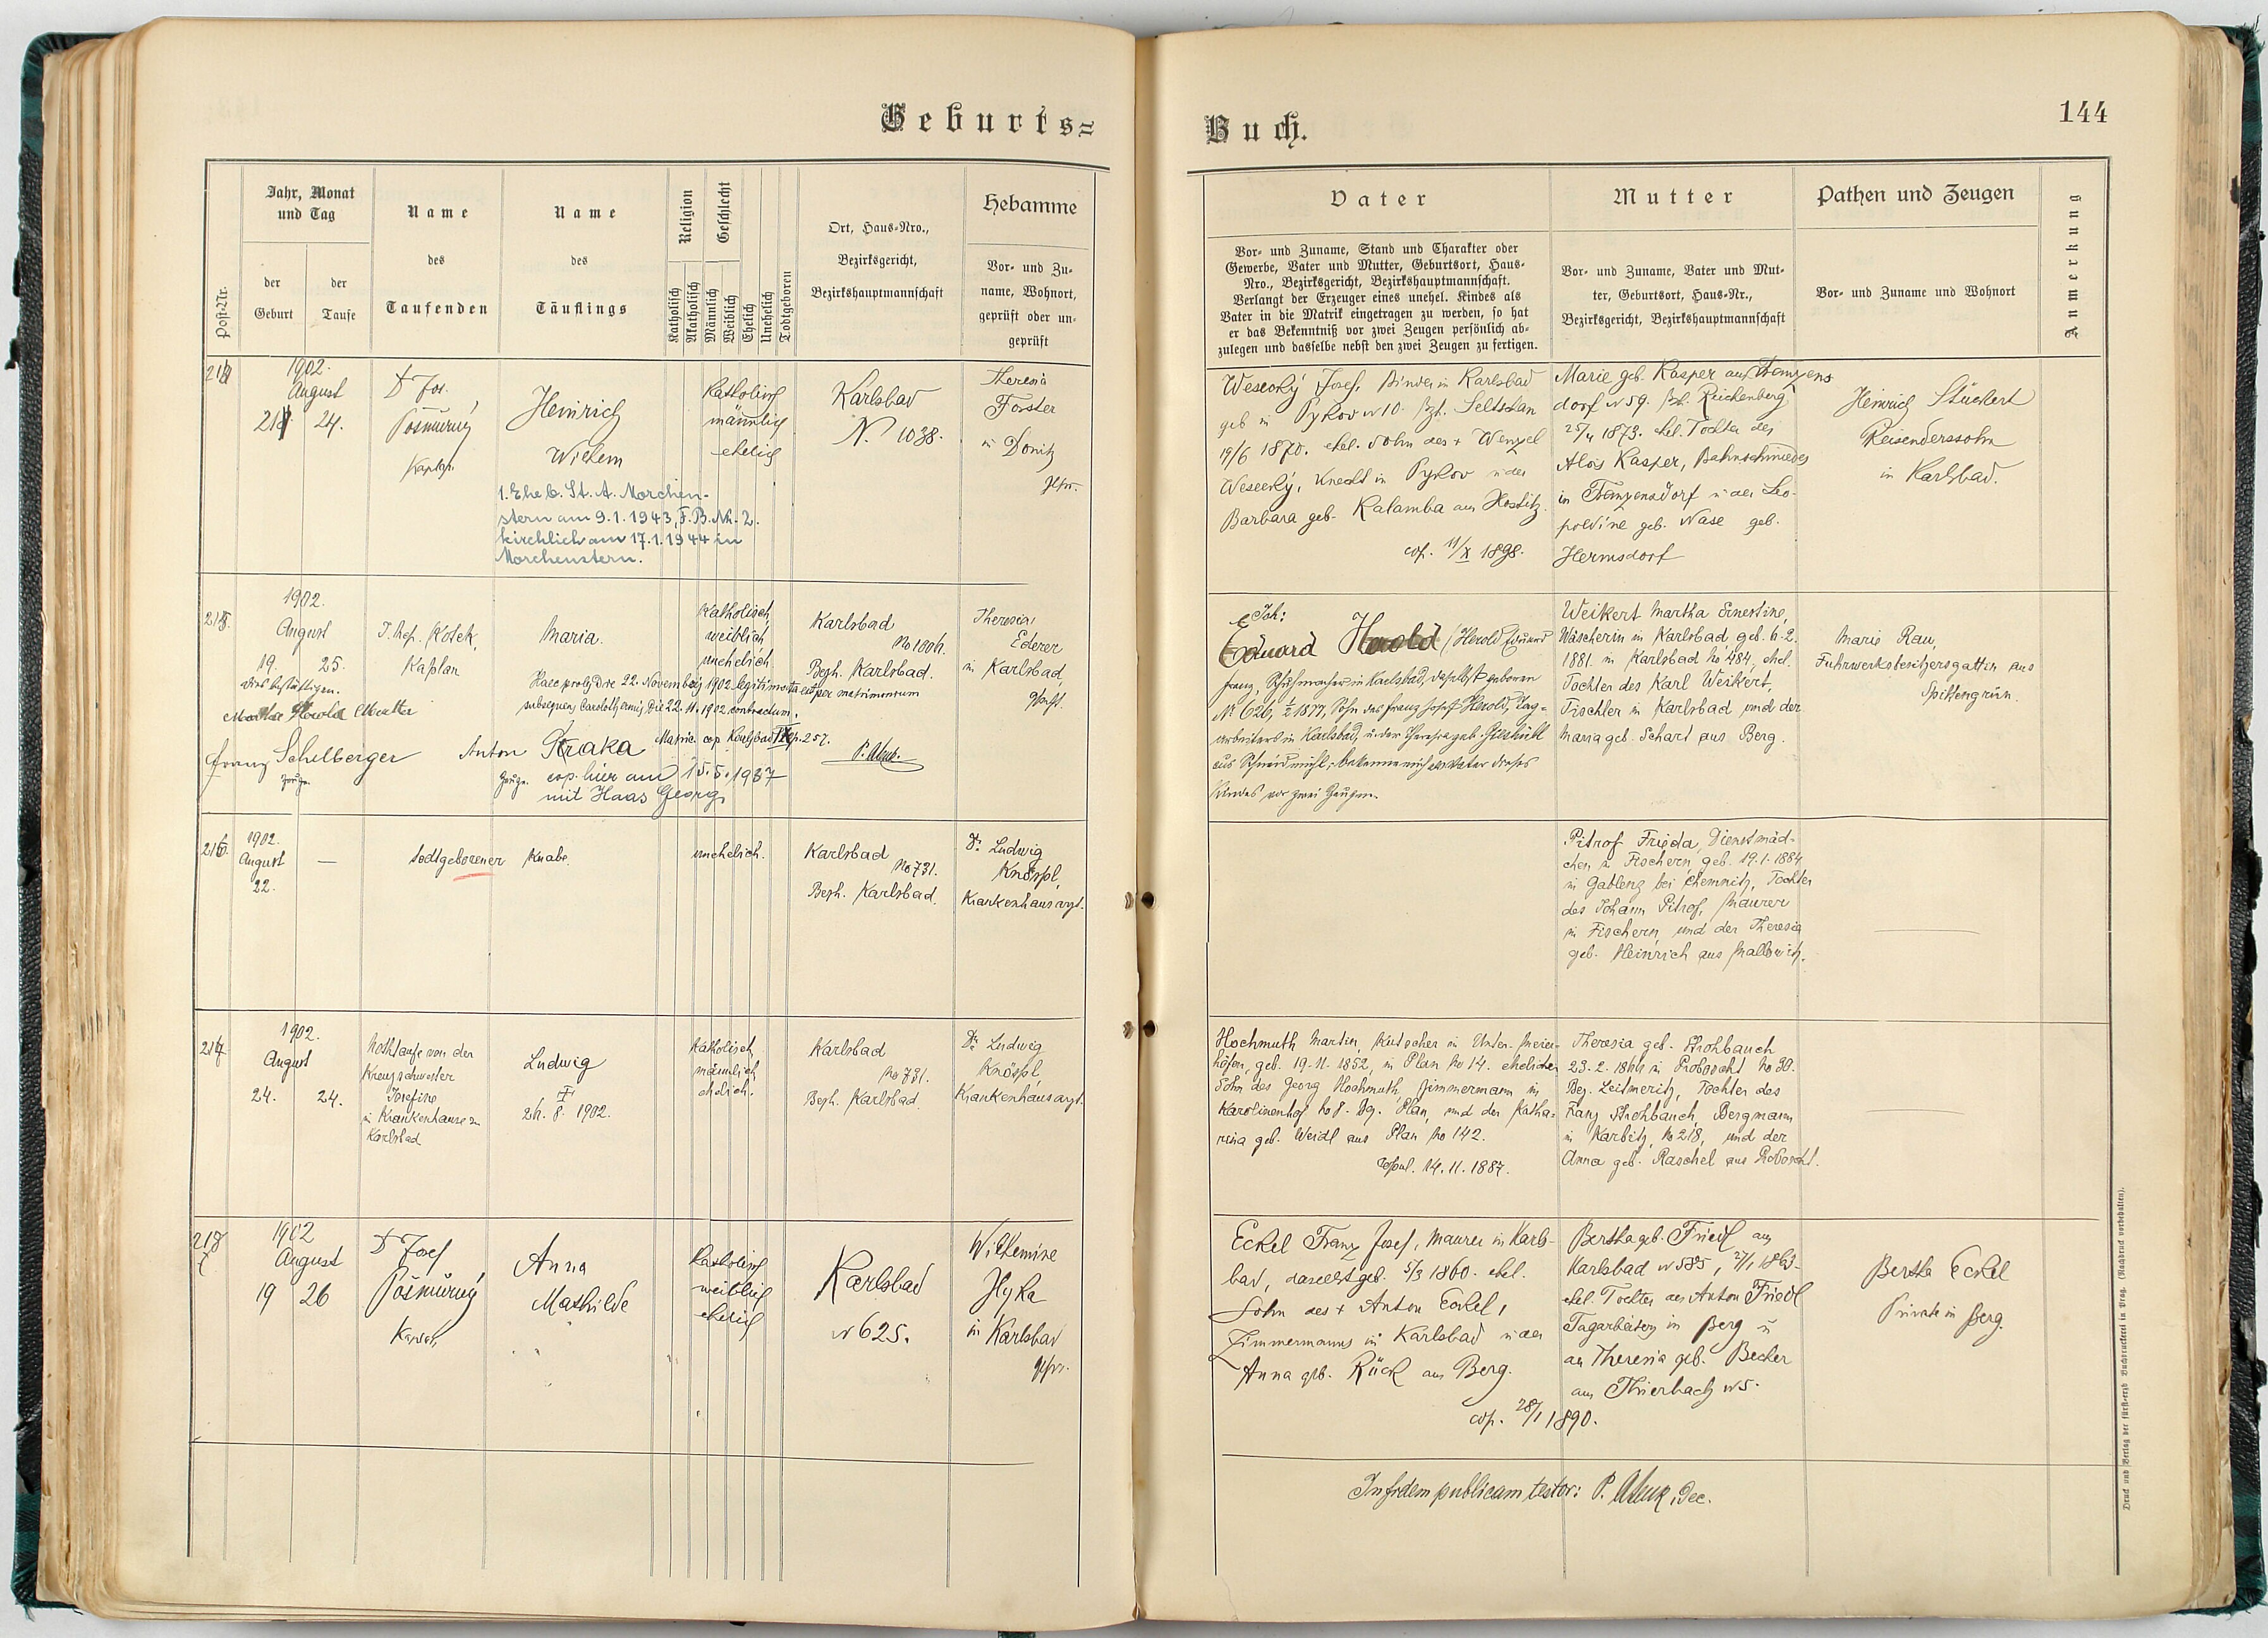 Geburts=
Buch.
144
Post-Nr.
Jahr, Monat
und Tag
der
Geburt
der
Taufe
Name
des
Taufenden
Name
des
Täuflings
Religion
Geschlecht
Katholisch
Akatholisch
Männlich
Weiblich
Ehelich
Unehelich
Todtgeboren
Ort, Haus-Nro.,
Bezirksgericht,
Bezirkshauptmannschaft
Hebamme
Vor- und Zu-
name, Wohnort,
geprüft oder un-
geprüft
Vater
Vor- und Zuname, Stand und Charakter oder
Gewerbe, Vater und Mutter, Geburtsort, Haus-
Nro., Bezirksgericht, Bezirkshauptmannschaft.
Verlangt der Erzeuger eines unehel. Kindes als
Vater in die Matrik eingetragen zu werden, so hat
er das Bekenntniß vor zwei Zeugen persönlich ab-
zulegen und dasselbe nebst den zwei Zeugen zu fertigen.
Mutter
Vor- und Zuname, Vater und Mut-
ter, Geburtsort, Haus-Nr.,
Bezirksgericht, Bezirkshauptmannschaft
Pathen und Zeugen
Vor- und Zuname und Wohnort
Anmerkung
1902.
August
24.
Dr Jos.
Pošmurný
Kaplan
Heinrich
Wilhelm
1. Ehe b. St. A. Morchen-
stern am 9.1.1943, F.B. Nr. 2.
kirchlich am 17.1.1944 in
Morchenstern.
Katholisch
männlich
ehelich
Karlsbad
N. 1038.
Theresia
Forster
in Donitz
gepr.
Wesecký Josef, Binder in Karlsbad
geb in Pykov N 10. Bzh. Seltschan
19/6 1870. ehel. Sohn des + Wenzel
Wesecký, Knecht in Pykov u der
Barbara geb. Kalamba aus Hostitz.
cop. 11/X 1898.
Marie geb. Kasper aus Franzens
dorf N 59. Bzh. Reichenberg
25/4 1873. ehel. Tochter des
Alois Kasper, Bahnschmiedes
in Franzensdorf u der Leo-
poldine geb. Nase geb.
Hermsdorf
Heinrich Stückert
Reisenderssohn
in Karlsbad.
215.
1902.
August
19. 25.
Dies bestättigen.
Martha Herold Mutter
Franz Schelberger
Zeuge
J. Nep. Kotek,
Kaplan
Maria.
Haec proles die 22. November 1902 legitimata est per matrimonium
subsequens Carolothermis die 22.11.1902 contractum.
Matric. cop. Karlsbad
p. 257.
Anton Straka
Zeuge.
cop. hier am 15.5.1937
mit Haas Georg
Katholisch,
weiblich,
unehelich
Karlsbad
No 1006.
Bezh. Karlsbad.
Theresia,
Ederer
in Karlsbad,
Joh:
Eduard Herold (Herold Eduard
Franz, Schuhmacher in Karlsbad, daselbst geboren
N° 626, 1877, Sohn des Franz Josef Herold, Tag-
arbeiters in Karlsbad, u. der Theresia geb.
bekenne mich als Vater dieses
Kindes vor zwei Zeugen.
Weikert Martha Ernestine,
Wäscherin in Karlsbad geb. 6.2.
1881. in Karlsbad No 484, ehel.
Tochter des Karl Weikert,
Tischler in Karlsbad und der
Maria geb. Schart aus Berg.
Marie Rau,
Fuhrwerksbesitzersgattin aus
Spittengrün.
216.
1902.
August
22.
—
todtgeborener Knabe.
unehelich.
Karlsbad
No 731.
Bezh. Karlsbad.
Dr. Ludwig
Knöspl,
Krankenhausarzt.
Pitrof Frieda, Dienstmäd-
chen in Fischern, geb. 19.1.1884
in Gablenz bei Chemnitz, Tochter
des Johann Pitrof, Maurer
in Fischern, und der Theresia
geb. Heinrich aus Mallowitz.
217
1902.
August
24. 24.
Nothtaufe von der
Kreuzschwester
Josefine
in Krankenhause zu
Karlsbad
Ludwig
†
26. 8. 1902.
Katholisch,
männlich,
ehelich.
Karlsbad
No 731.
Bezh. Karlsbad.
Dr. Ludwig
Knöspl
Krankenhausarzt.
Hochmuth Martin, Kutscher in Unter-Meier-
höfen, geb. 19.11.1852, in Plan No 14. ehelicher
Sohn des Georg Hochmuth, Zimmermann in
Karolinenhof No 8. Bg. Plan, und der Katha-
rina geb. Weidl aus Plan No 142.
Copul. 14.11.1887.
Theresia geb. Strohbauch
23.2.1866 in Proboscht No 30.
Bez. Leitmeritz, Tochter des
Franz Strohbauch, Bergmann
in Karbitz, No 218, und der
Anna geb. Raschel aus Proboscht.
218
1902
August
19 26
Dr Josef
Pošmurný
Anna
Mathilde
Katholisch
weiblich
ehelich
Karlsbad
N 625.
Wilhemine
Hyka
in Karlsbad
gepr.
Eckel Franz Josef, Maurer in Karls-
bad, daselbst geb. 5/3 1860. ehel.
Sohn des + Anton Eckel,
Zimmermanns in Karlsbad u der
Anna geb. Rück aus Berg.
cop. 28/1 1890.
Bertha geb. Friedl aus
Karlsbad N 585, 27/1 1863-
ehel. Tochter des Anton Friedl
Tagarbeiters in Berg u
der Theresia geb. Becher
aus Thierbach N 5.
Bertha Eckel
Private in Berg.
In fidem publicam testor: P. Dec.
Druck und Verlag der fürst-erzb. Buchdruckerei in Prag. (Nachdruck vorbehalten).